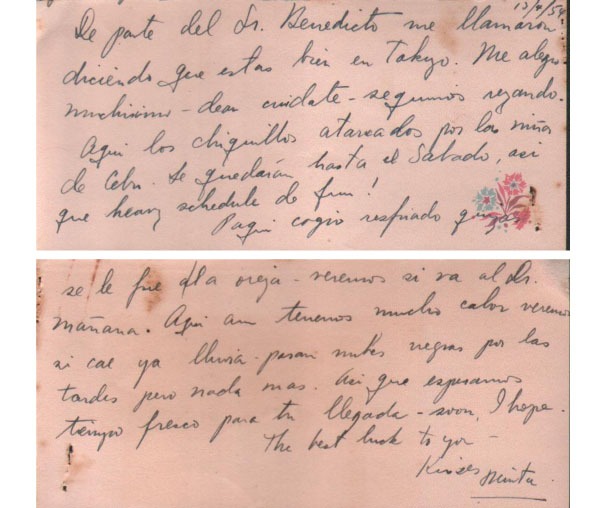 13/5/54
De parte del Sr. Benedicto me llamaron
diciendo que estas bien en Tokyo. Me alegro
muchisimo - dear cuidate - seguimos rezando.
Aqui los chiquillos atareados por las niñas
de Cebu. Se quedarán hasta el Sabado, asi
que heavy schedule de fun!
Paqui cogio resfriado quizas
se le fue a la oreja - veremos si va al Dr.
mañana. Aqui aun tenemos mucho calor veremos
si cae ya lluvia - pasan nubes negras por las
tardes pero nada mas. Asi que esperamos
tiempo fresco para tu llegada - soon, I hope.
The best luck to you -
Kisses